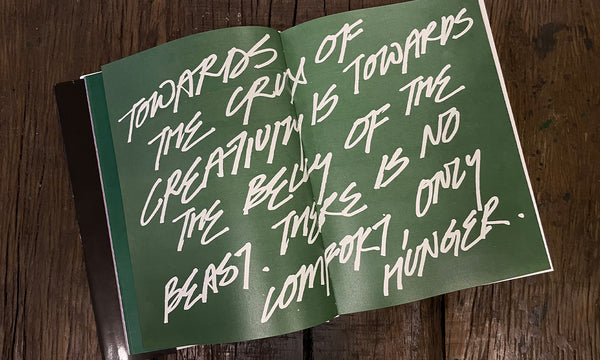 TOWARDS
THE CRUX OF
CREATIVITY IS TOWARDS
THE BELLY OF THE
BEAST. THERE IS NO
COMFORT, ONLY
HUNGER.